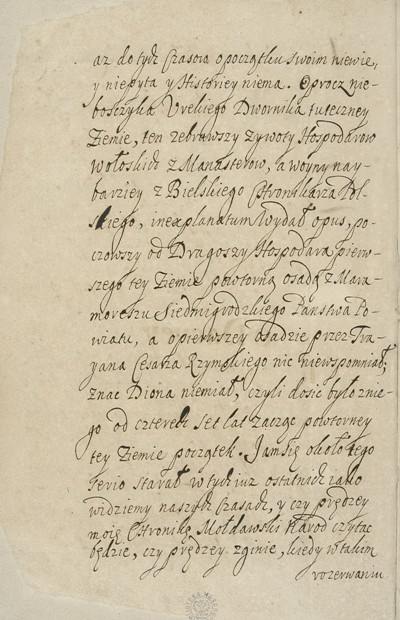 az do tych czasow o początku swoim niewie,
y niepyta y Historiey niema. Oprocz nie-
boszczyka Vrekiego Dwornika tuteczney
Ziemie, ten zebrawszy zywoty Hospodarow
Wołoskich z Manasterow, a woyny nay-
barziey z Bielskiego Chronikarza Pol-
skiego, inexplanatum wydał opus, po-
czowszy od Dragoszy Hospodara pierw-
szego tey Ziemie powtorną osadą z Mara-
moreszu Siedmigrodzkiego Panstwa Po-
wiatu, a o pierwszey osadzie przez Tra-
yana Cesarza Rzymskiego nic niewspomniał,
znac Diona niemiał, czyli dosic było z nie-
go od czterech set lat zacząc powtorney
tey Ziemie początek. Jam się około tego
serio starał w tych iuz ostatnich iako
widziemy naszych czasach, y czy prędzey
moię Chronikę Mołdawski Narod czytac
będzie, czy prędzey zginie, kiedy w takim
rozerwaniu